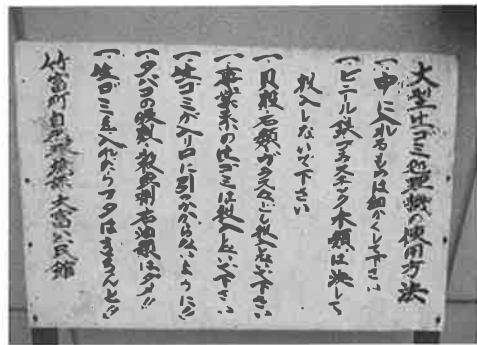 大型生ゴミ処理機の使用方法
一、中に入れるものは細かくして下さい
一、ビニール鉄プラスチック木類は決して
投入しないで下さい
一、貝殻石類ガラスなども投入しないで下さい
一、事業系の生ゴミは投入しないで下さい
一、生ゴミが入り口に引っかからないように!!
一、タバコの吸殻・殺虫剤石油類はダメ!!
一、生ゴミを入れたらフタはきちんと!!
竹富町自然環境課 大富公民館